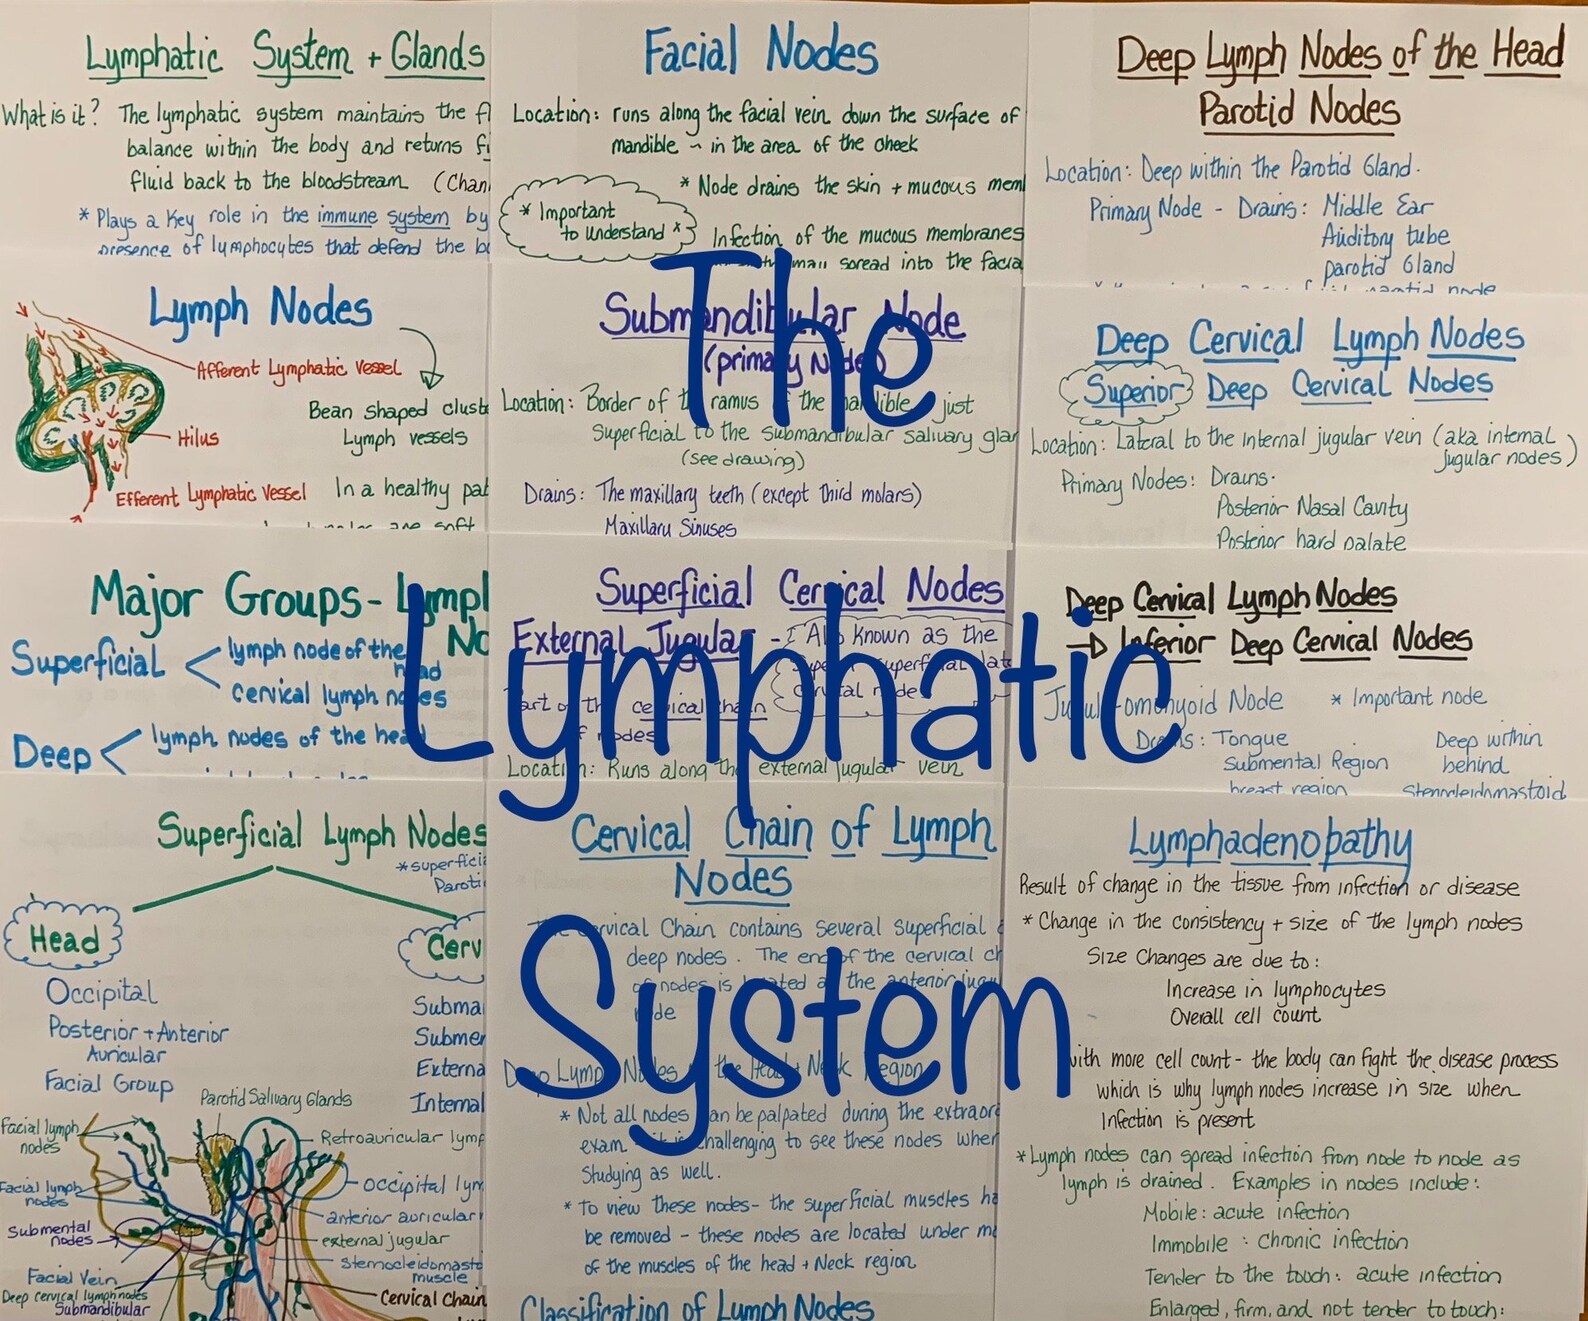 Lymphatic System + Glands
What is it? The lymphatic system maintains the fl
balance within the body and returns fi
fluid back to the bloodstream (Chan
* Plays a key role in the immune system by
presence of lymphocytes that defend the bo
Lymph Nodes
Afferent Lymphatic Vessel
Bean shaped clust
Lymph vessels
Hilus
Efferent Lymphatic Vessel
In a healthy pat
are soft
Major Groups - Lympl
No
Superficial
lymph node of the
head
cervical lymph nodes
Deep
lymph nodes of the head
Superficial Lymph Nodes
* superfici
Paroti
Head
Cerv
Occipital
Posterior + Anterior
Auricular
Facial Group
Subma
Submen
Externa
Internal
Parotid Salivary Glands
Facial lymph
nodes
Retroauricular lymp
Facial lymph
nodes
occipital lym
Submental
nodes
anterior auricular
external jugular
Sternocleidomasto
muscle
Facial Vein
Deep cervical lymph nodes
Submandibular
Cervical Chain
Facial Nodes
Location: runs along the facial vein down the surface of
mandible ~ in the area of the cheek
* Node drains the skin + mucous mem
* Important
to understand *
Infection of the mucous membranes
may spread into the facia
Submandibular Node
(primary Node)
Location: Border of the ramus of the mandible just
Superficial to the submandibular salivary glan
(see drawing)
Drains: The maxillary teeth (except third molars)
Maxillary Sinuses
Superficial Cervical Nodes
External Jugular - Also known as the
Part of the cervical chain
of nodes
Location: Runs along the external jugular vein
Cervical Chain of Lymph
Nodes
The Cervical Chain contains several superficial
deep nodes. The end of the cervical ch
of nodes is located at the anterior jugu
node
Deep Lymph Nodes of the Head + Neck Region
* Not all nodes can be palpated during the extraor
exam challenging to see these nodes when
studying as well.
* To view these nodes - the superficial muscles ha
be removed - these nodes are located under mo
of the muscles of the head + Neck region
Classification of Lymph Nodes
Deep Lymph Nodes of the Head
Parotid Nodes
Location: Deep within the Parotid Gland.
Primary Node - Drains: Middle Ear
Auditory tube
parotid Gland
node
Deep Cervical Lymph Nodes
Superior Deep Cervical Nodes
Location: Lateral to the internal jugular vein (aka internal
jugular nodes)
Primary Nodes: Drains.
Posterior Nasal Cavity
Posterior hard palate
Deep Cervical Lymph Nodes
→ Inferior Deep Cervical Nodes
Jugulo-omohyoid Node * Important node
Drains: Tongue
Submental Region
breast region
Deep within
behind
sternocleidomastoid
Lymphadenopathy
Result of change in the tissue from infection or disease
* Change in the consistency + size of the lymph nodes
Size Changes are due to:
Increase in lymphocytes
Overall cell count
with more cell count - the body can fight the disease process
which is why lymph nodes increase in size when
Infection is present
* Lymph nodes can spread infection from node to node as
lymph is drained. Examples in nodes include:
Mobile: acute infection
Immobile: chronic infection
Tender to the touch: acute infection
Enlarged, firm, and not tender to touch:
The
Lymphatic
System